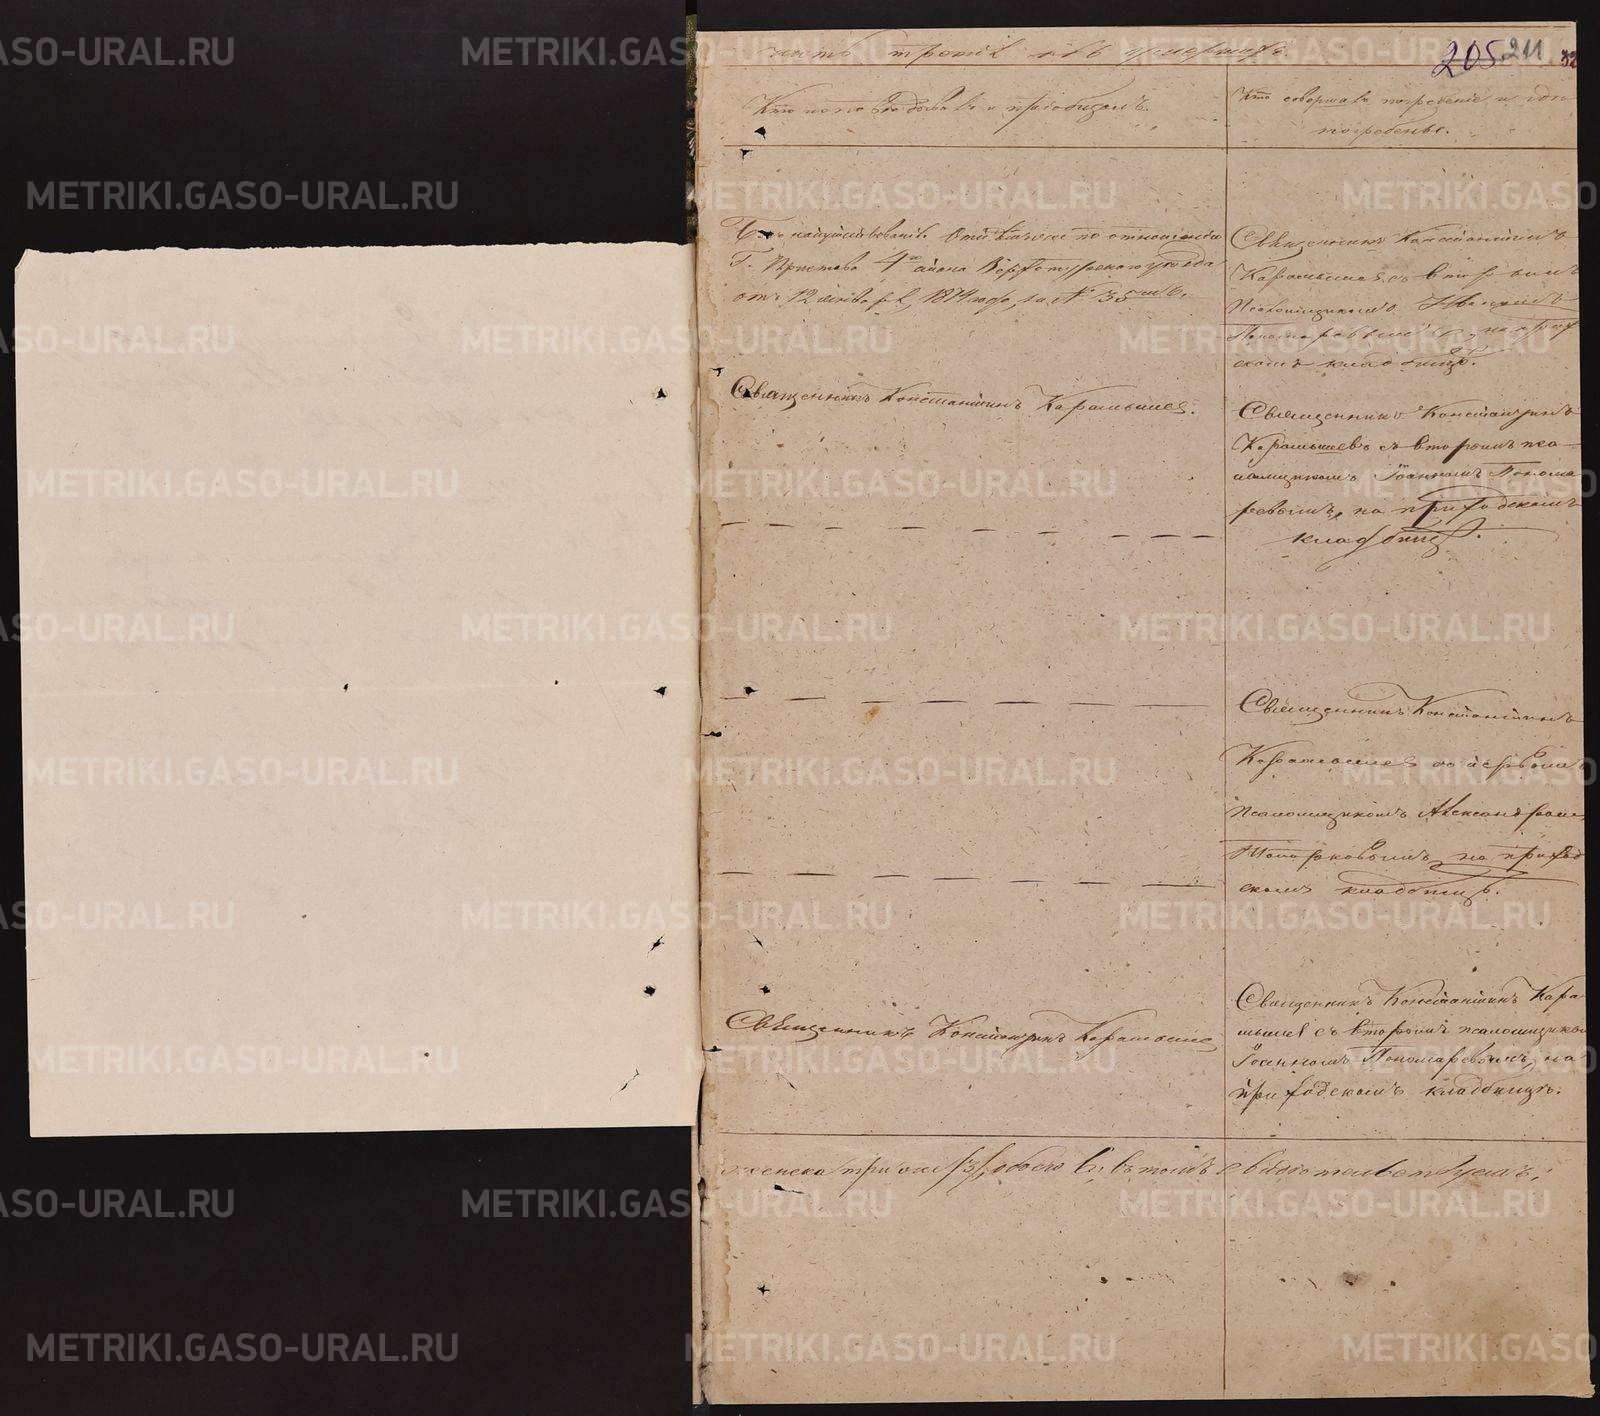 часть третія объ умершихъ.
205 211 32
Кто исповѣдовалъ и пріобщалъ.
Кто совершалъ погребеніе и гдѣ
погребены.
по отношенію
Г. Пристава 4го Верхотурскаго уѣзда
отъ 12 1874 года за № 35мъ.
Священникъ Константинъ
Карамышевъ съ вторымъ
Псаломщикомъ Іоанномъ
Пономаревымъ, на приход
скомъ кладбищѣ.
Священникъ Константинъ Карамышев.
Священникъ Константинъ
Карамышевъ съ вторымъ пса-
ломщикомъ Іоанномъ Понома
ревымъ, на приходскомъ
кладбищѣ.
Священникъ Константинъ
Карамышев съ первымъ
псаломщикомъ Александромъ
Топорковымъ на приход
скомъ кладбищѣ.
Священникъ Константинъ Карамыше
Священникъ Константинъ Кара
мышев съ вторымъ псаломщиком
Іоанномъ Пономаревымъ, на
приходскомъ кладбищѣ.
женска три /3/, обоего въ томъ свидѣтельствуемъ:
METRIKI.GASO-URAL.RU